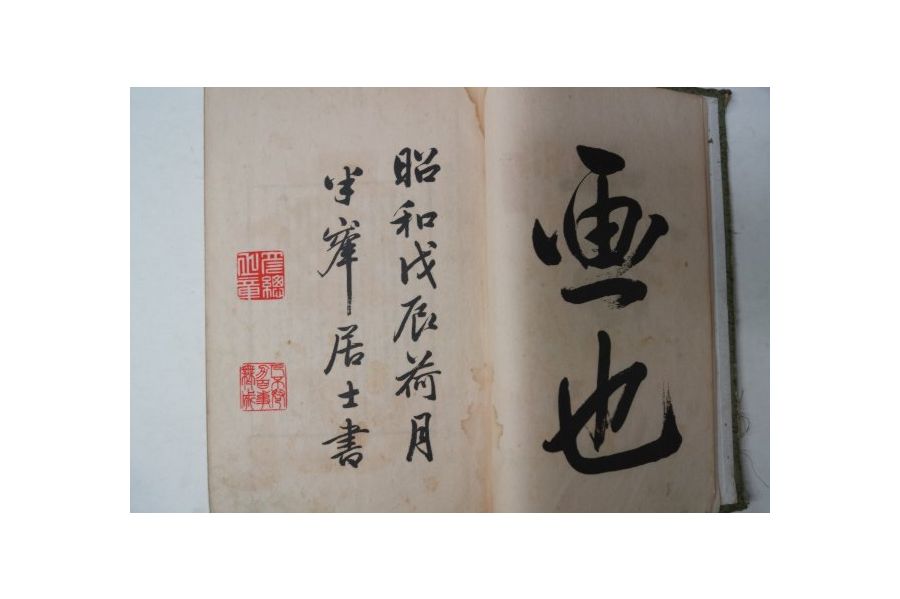 画也
昭和戊辰荷月
半峯居士書